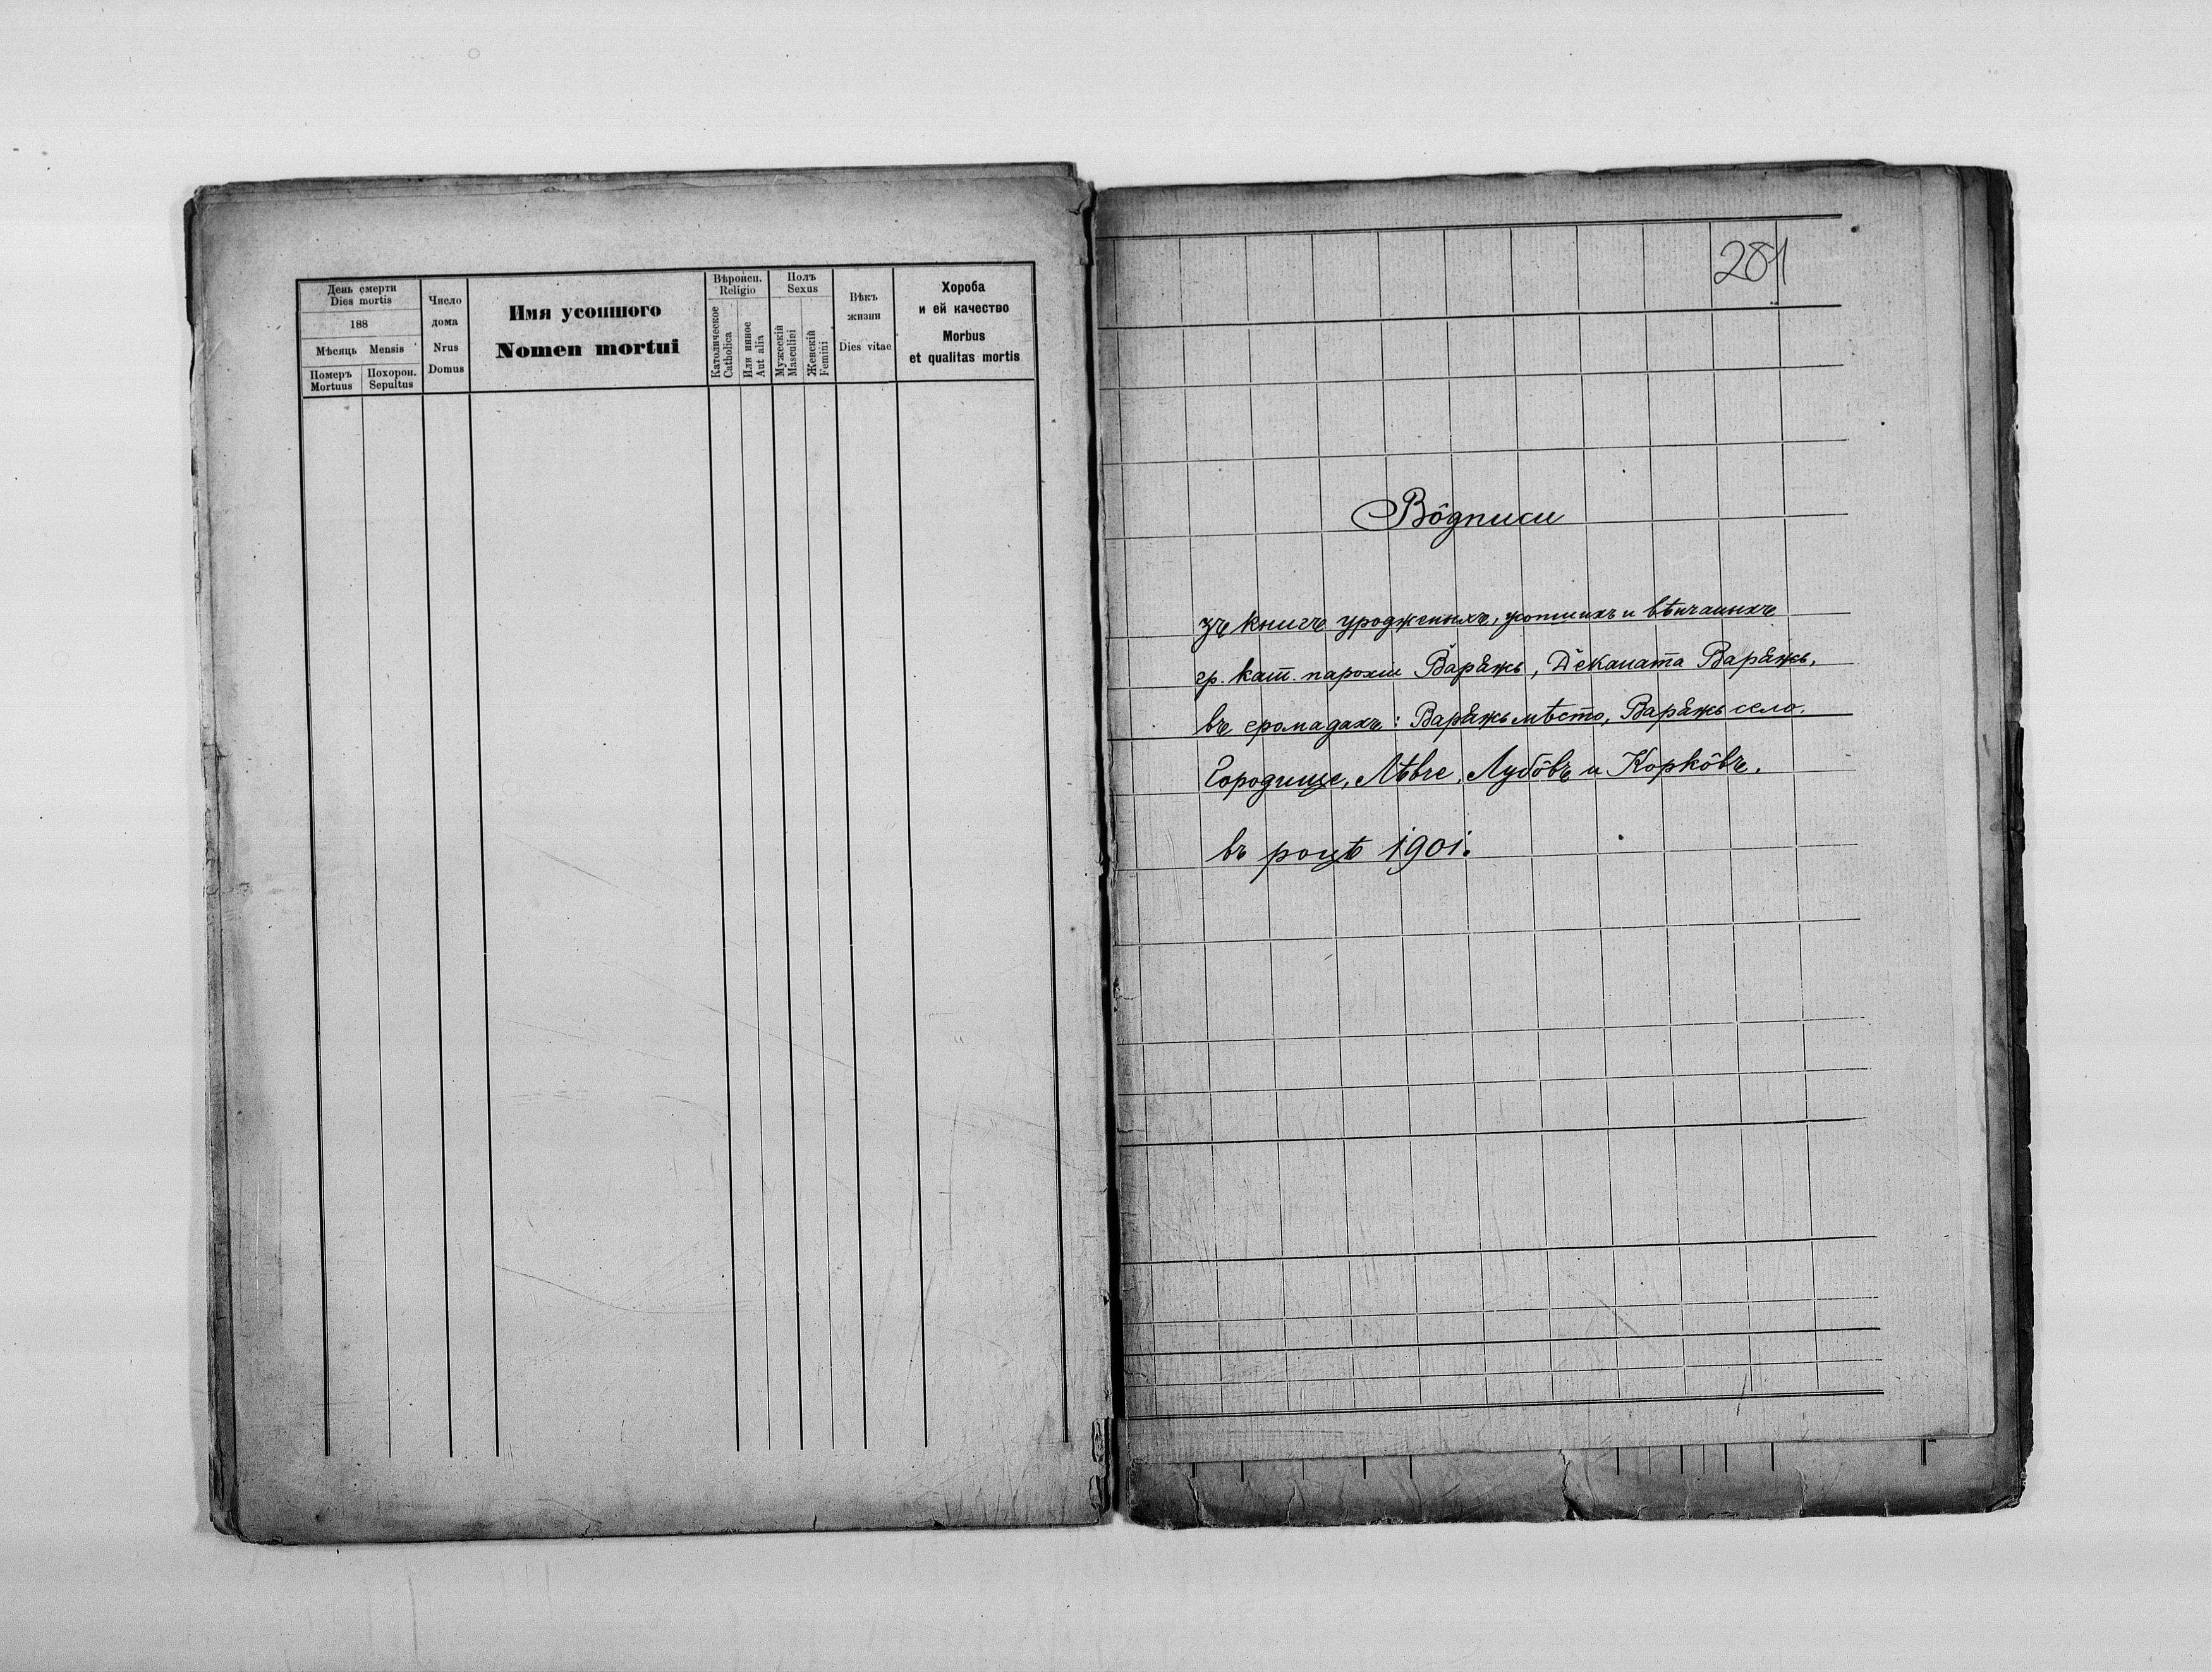 День смерти
Dies mortis
188
Мѣсяць Mensis
Померъ
Mortuus
Похорон.
Sepultus
Число
дома
Nrus
Domus
Имя усопшого
Nomen mortui
Вѣроисп.
Religio
Католическое
Catholica
Или инное
Aut alia
Полъ
Sexus
Мужескій
Masculini
Женскій
Femini
Вѣкъ
жизни
Dies vitae
Хороба
и ей качество
Morbus
et qualitas mortis
281
Вôдписи
зъ книгъ уродженыхъ, усопшихъ и вѣнчаныхъ
гр. кат. парохіи Варяжъ, Деканата Варяжъ,
въ громадахъ: Варяжъ мѣсто, Варяжъ село,
Городище, Лѣвче, Лубôвъ и КорКôвъ.
въ роцѣ 1901.